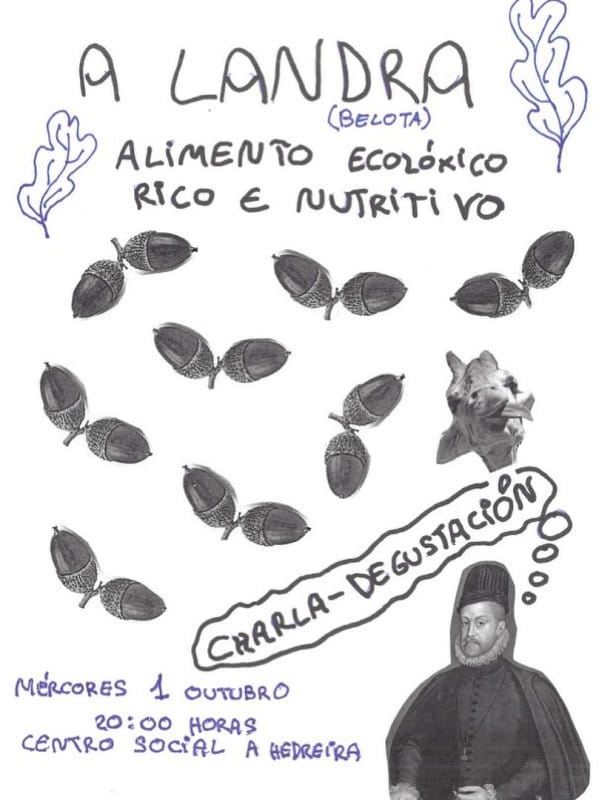 A LANDRA
(BELOTA)
ALIMENTO ECOLÓXICO
RICO E NUTRITIVO
CHARLA-DEGUSTACIÓN
MÉRCORES 1 OUTUBRO
20:00 HORAS
CENTRO SOCIAL A HEDREIRA